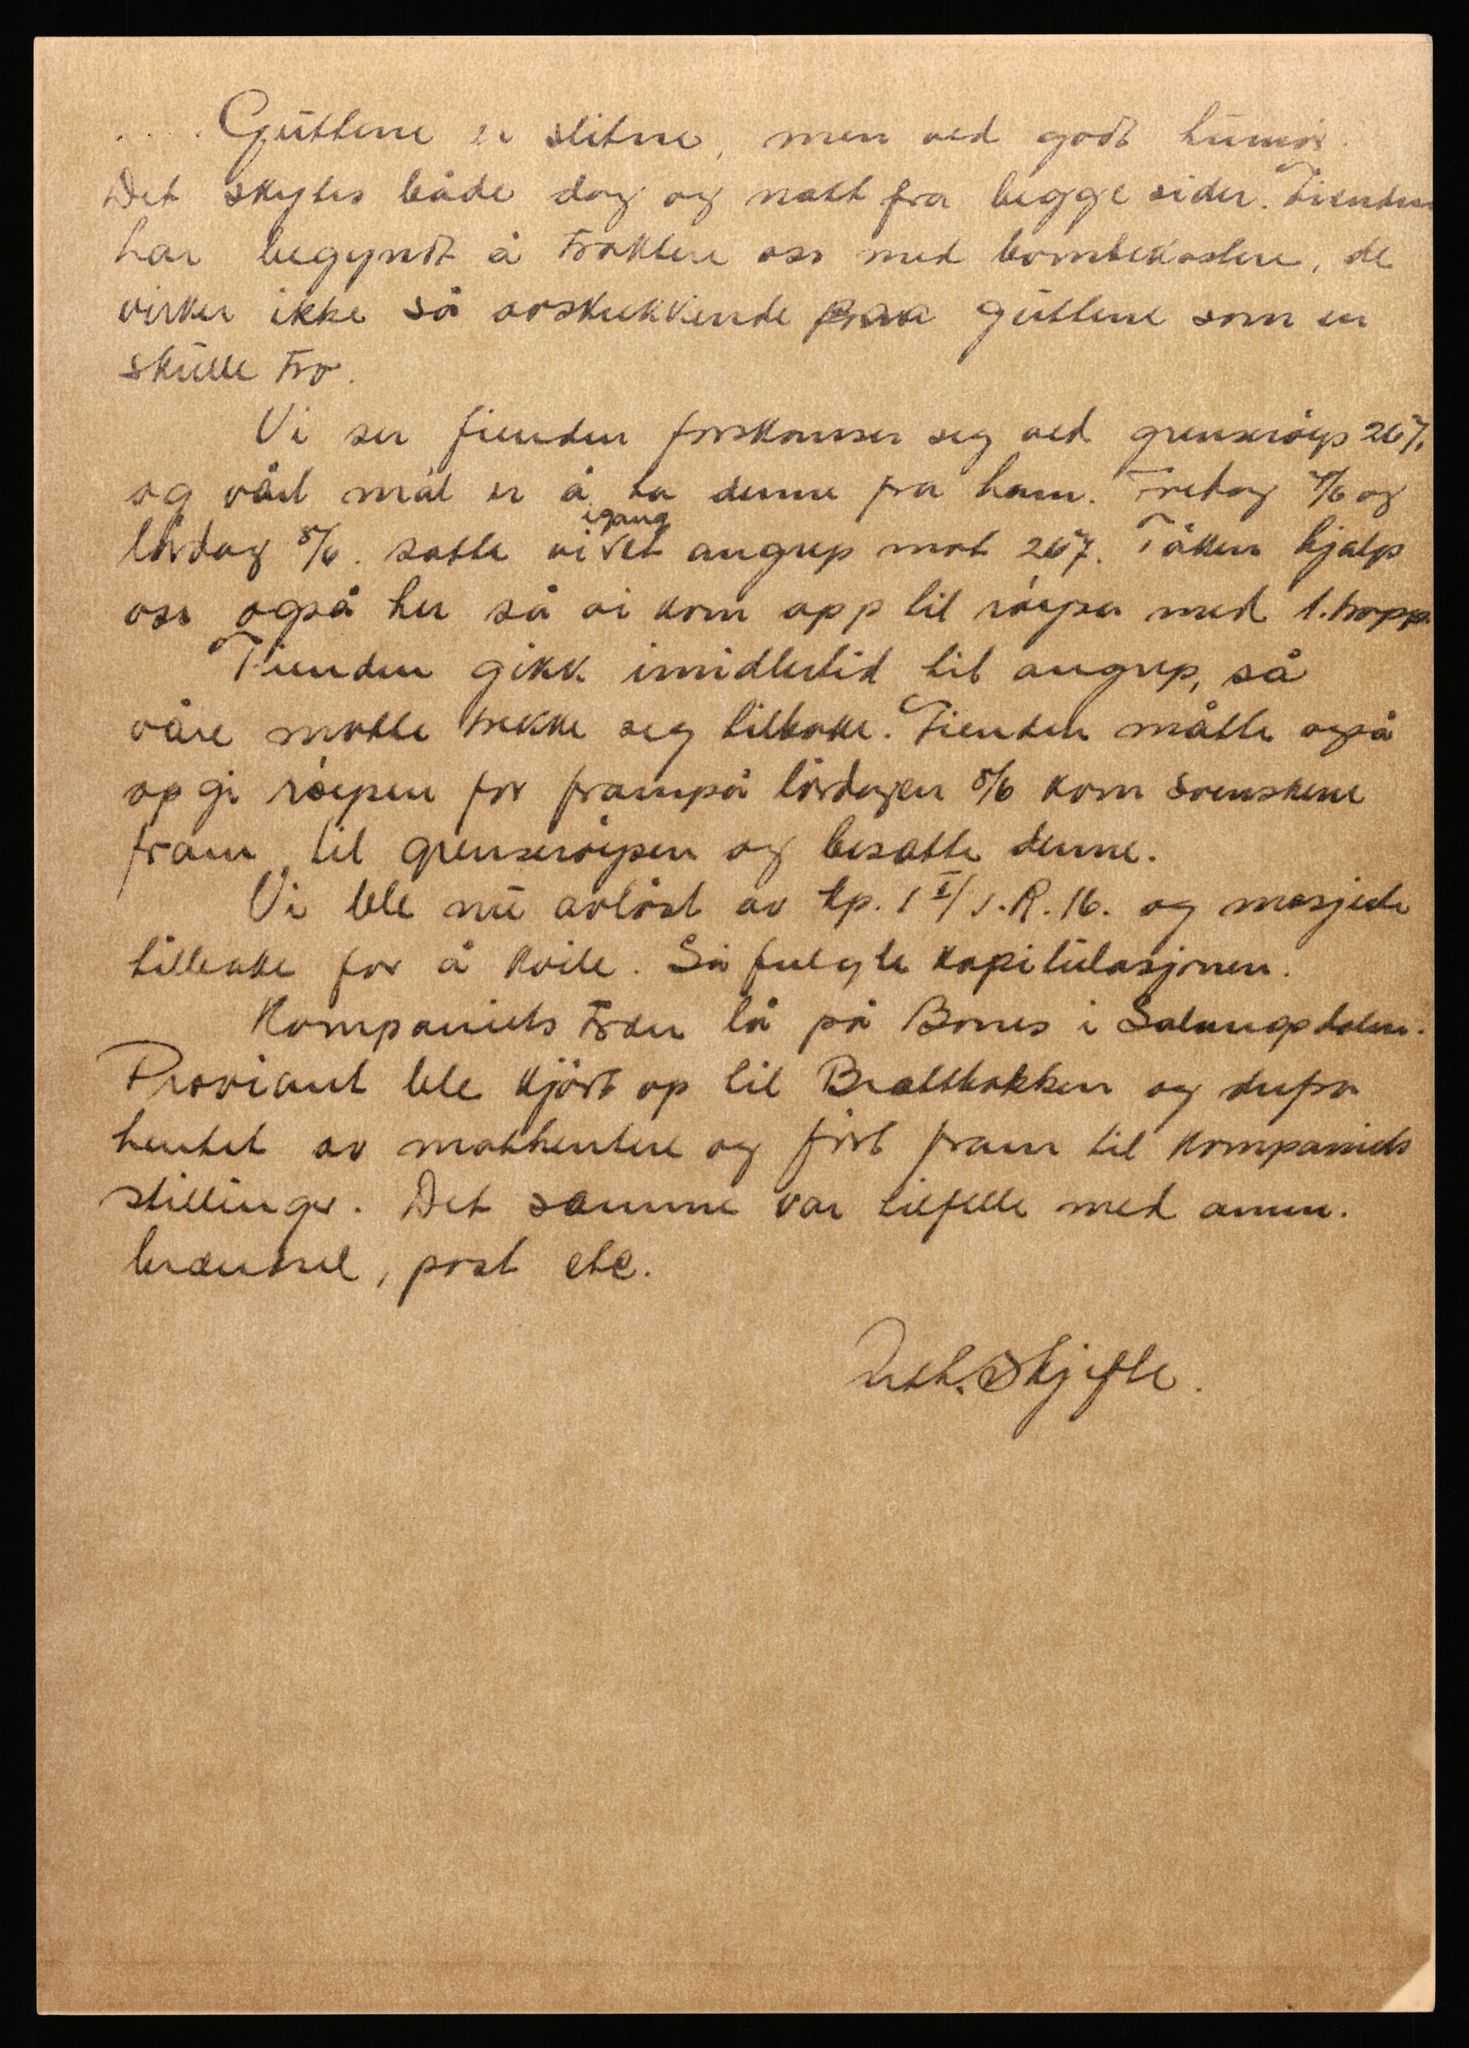 .... Guttene er slitne, men ved godt humør.
Det skytes både dag og natt fra begge sider. Fienden
har begyndt å traktere oss med bombekastere, de
virker ikke så avskrekkende på guttene som en
skulle tro.
Vi ser fienden forskanser seg ved grenserøys 267,
og vårt mål er å ta denne fra ham. Fredag 7/6 og
lørdag 8/6. satte vi igang et angrep mot 267. Tåken hjalp
oss også her så vi kom opp til røysa med 1. tropp.
Fienden gikk imidlertid til angrep, så
våre måtte trekke seg tilbake. Fienden måtte også
opgi røysen for frampå lørdagen 8/6 kom svenskene
fram til grenserøysen og besatte denne.
Vi ble nu avløst av kp. 1 I/I.R.16. og masjerte
tilbake for å kvile. Så fulgte kapitulasjonen.
Kompaniets træn lå på Bones i Salangsdalen.
Proviant ble kjørt op til Brattbakken og derfra
hentet av mathentere og ført fram til kompaniets
stillinger. Det samme var tilfelle med amm.
brændsel, post etc.
Skjefte.